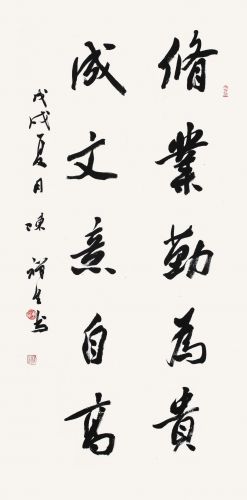 脩業勤為貴
成文意自高
戊戌夏月陳